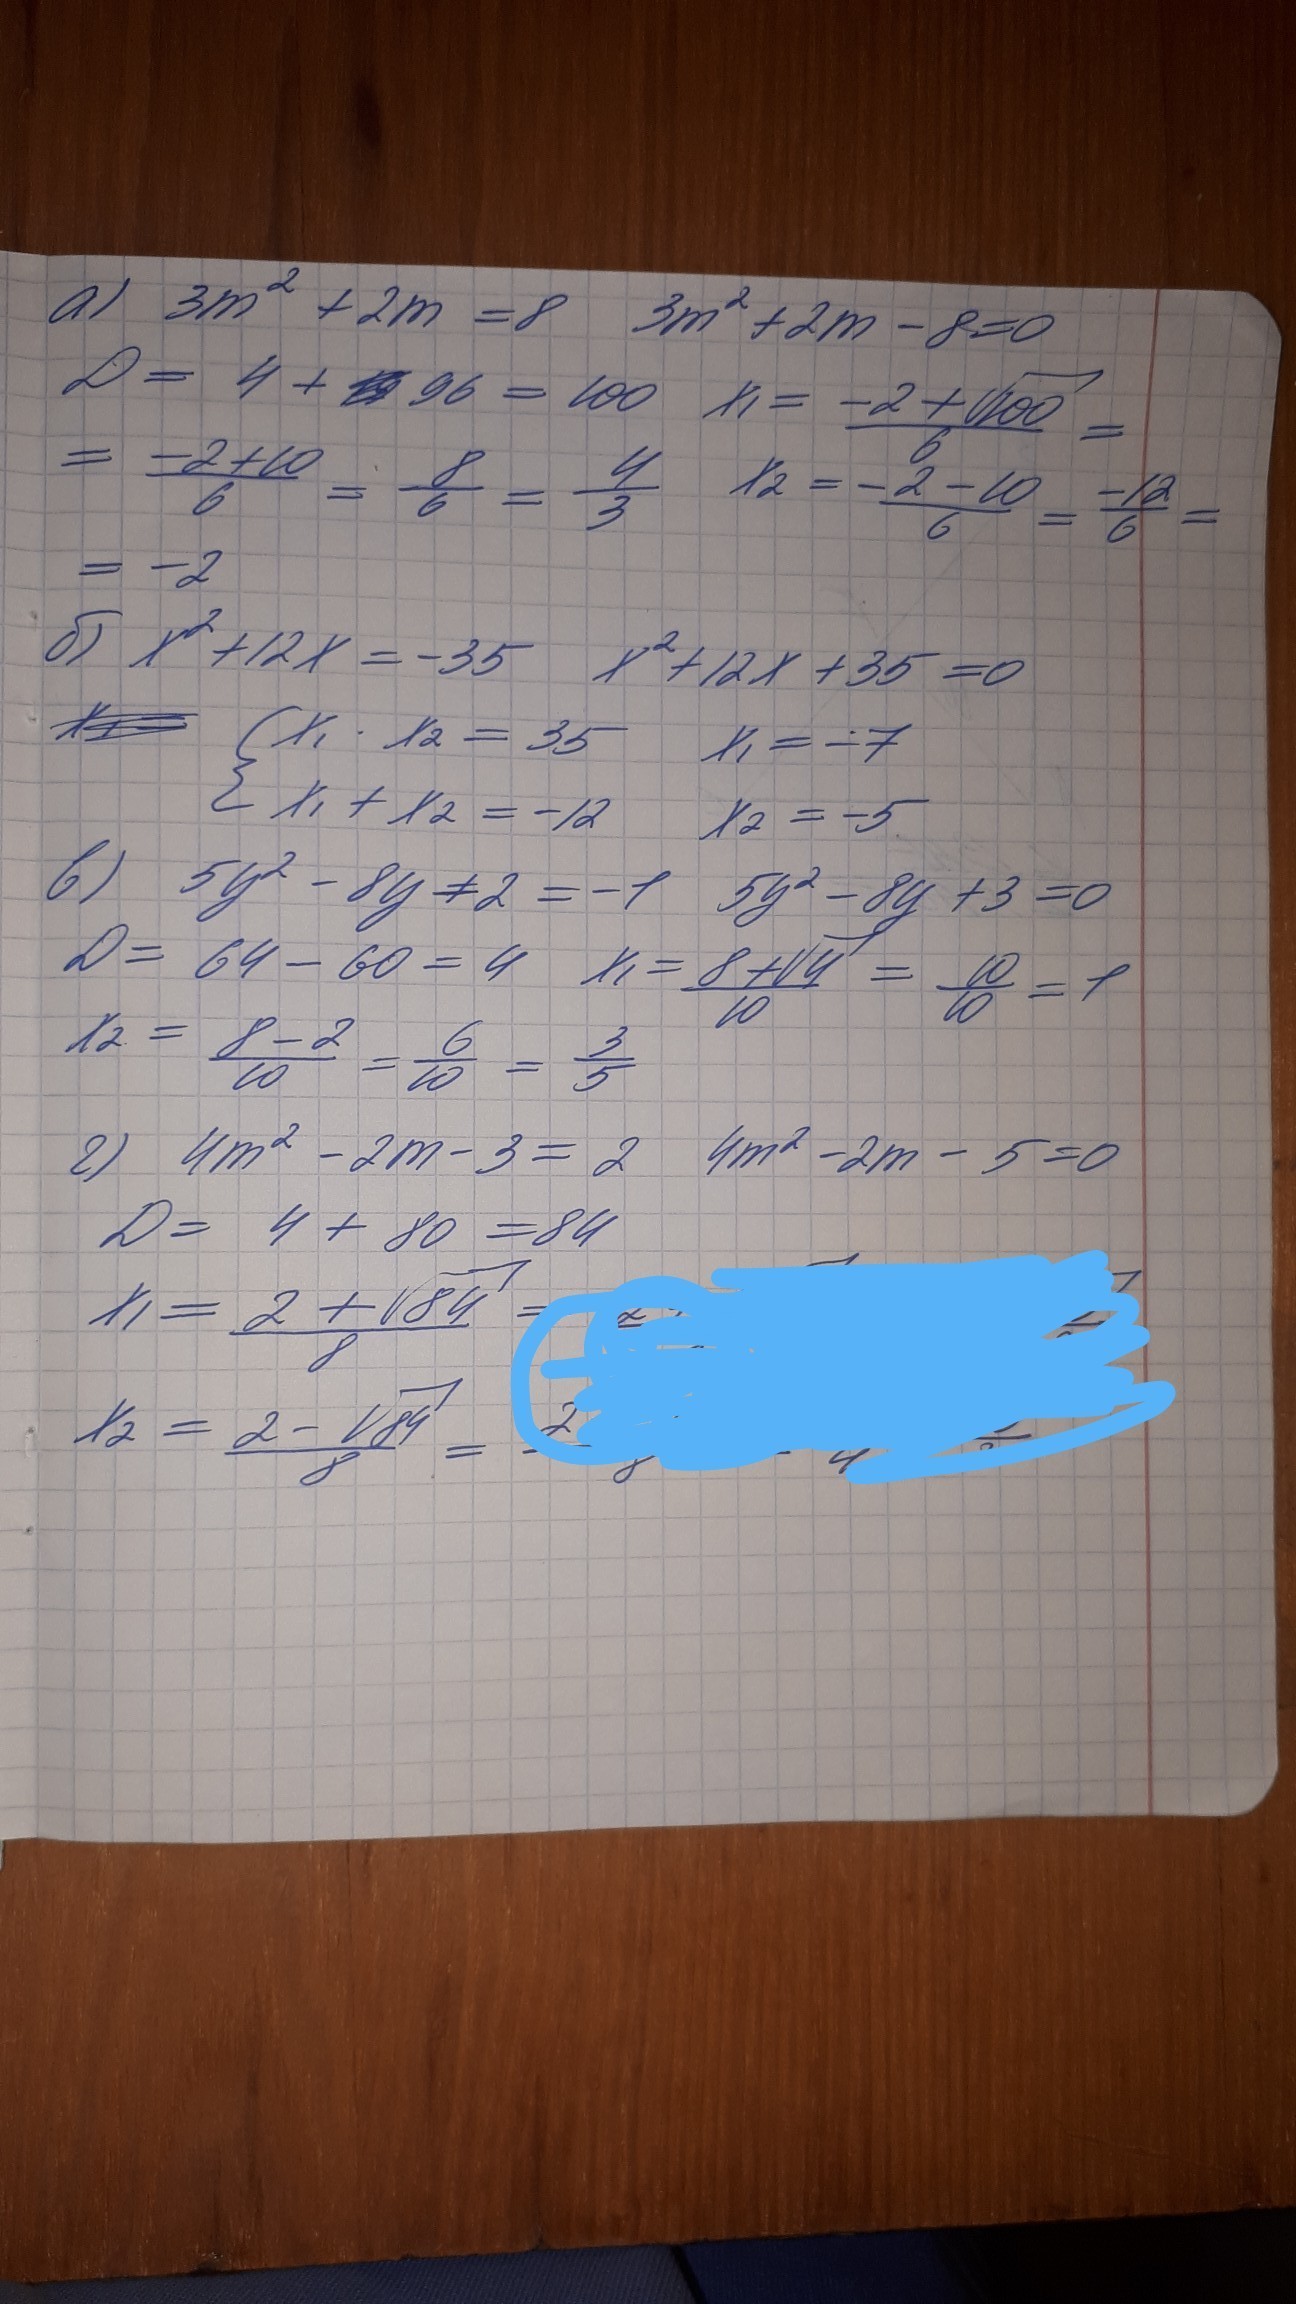 а) 3m² + 2m = 8 3m² + 2m - 8 = 0
D = 4 + 96 = 100 x₁ = (-2 + √100)/6 =
= (-2 + 10)/6 = 8/6 = 4/3 x₂ = (-2 - 10)/6 = -12/6 =
= -2
б) x² + 12x = -35 x² + 12x + 35 = 0
{ x₁ · x₂ = 35 x₁ = -7
x₁ + x₂ = -12 x₂ = -5
в) 5y² - 8y + 2 = -1 5y² - 8y + 3 = 0
D = 64 - 60 = 4 x₁ = (8 + √4)/10 = 10/10 = 1
x₂ = (8 - 2)/10 = 6/10 = 3/5
г) 4m² - 2m - 3 = 2 4m² - 2m - 5 = 0
D = 4 + 80 = 84
x₁ = (2 + √84)/8 =
x₂ = (2 - √84)/8 =